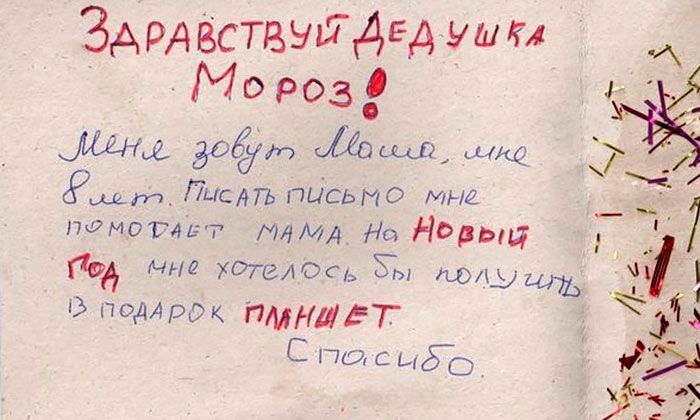 ЗДРАВСТВУЙ ДЕДУШКА
МОРОЗ!
Меня зовут Маша, мне
8 лет. ПИСАТЬ ПИСЬМО МНЕ
ПОМОГАЕТ МАМА. НА НОВЫЙ
ГОД МНЕ ХОТЕЛОСЬ БЫ ПОЛУЧИТЬ
В ПОДАРОК ПЛАНШЕТ.
Спасибо.